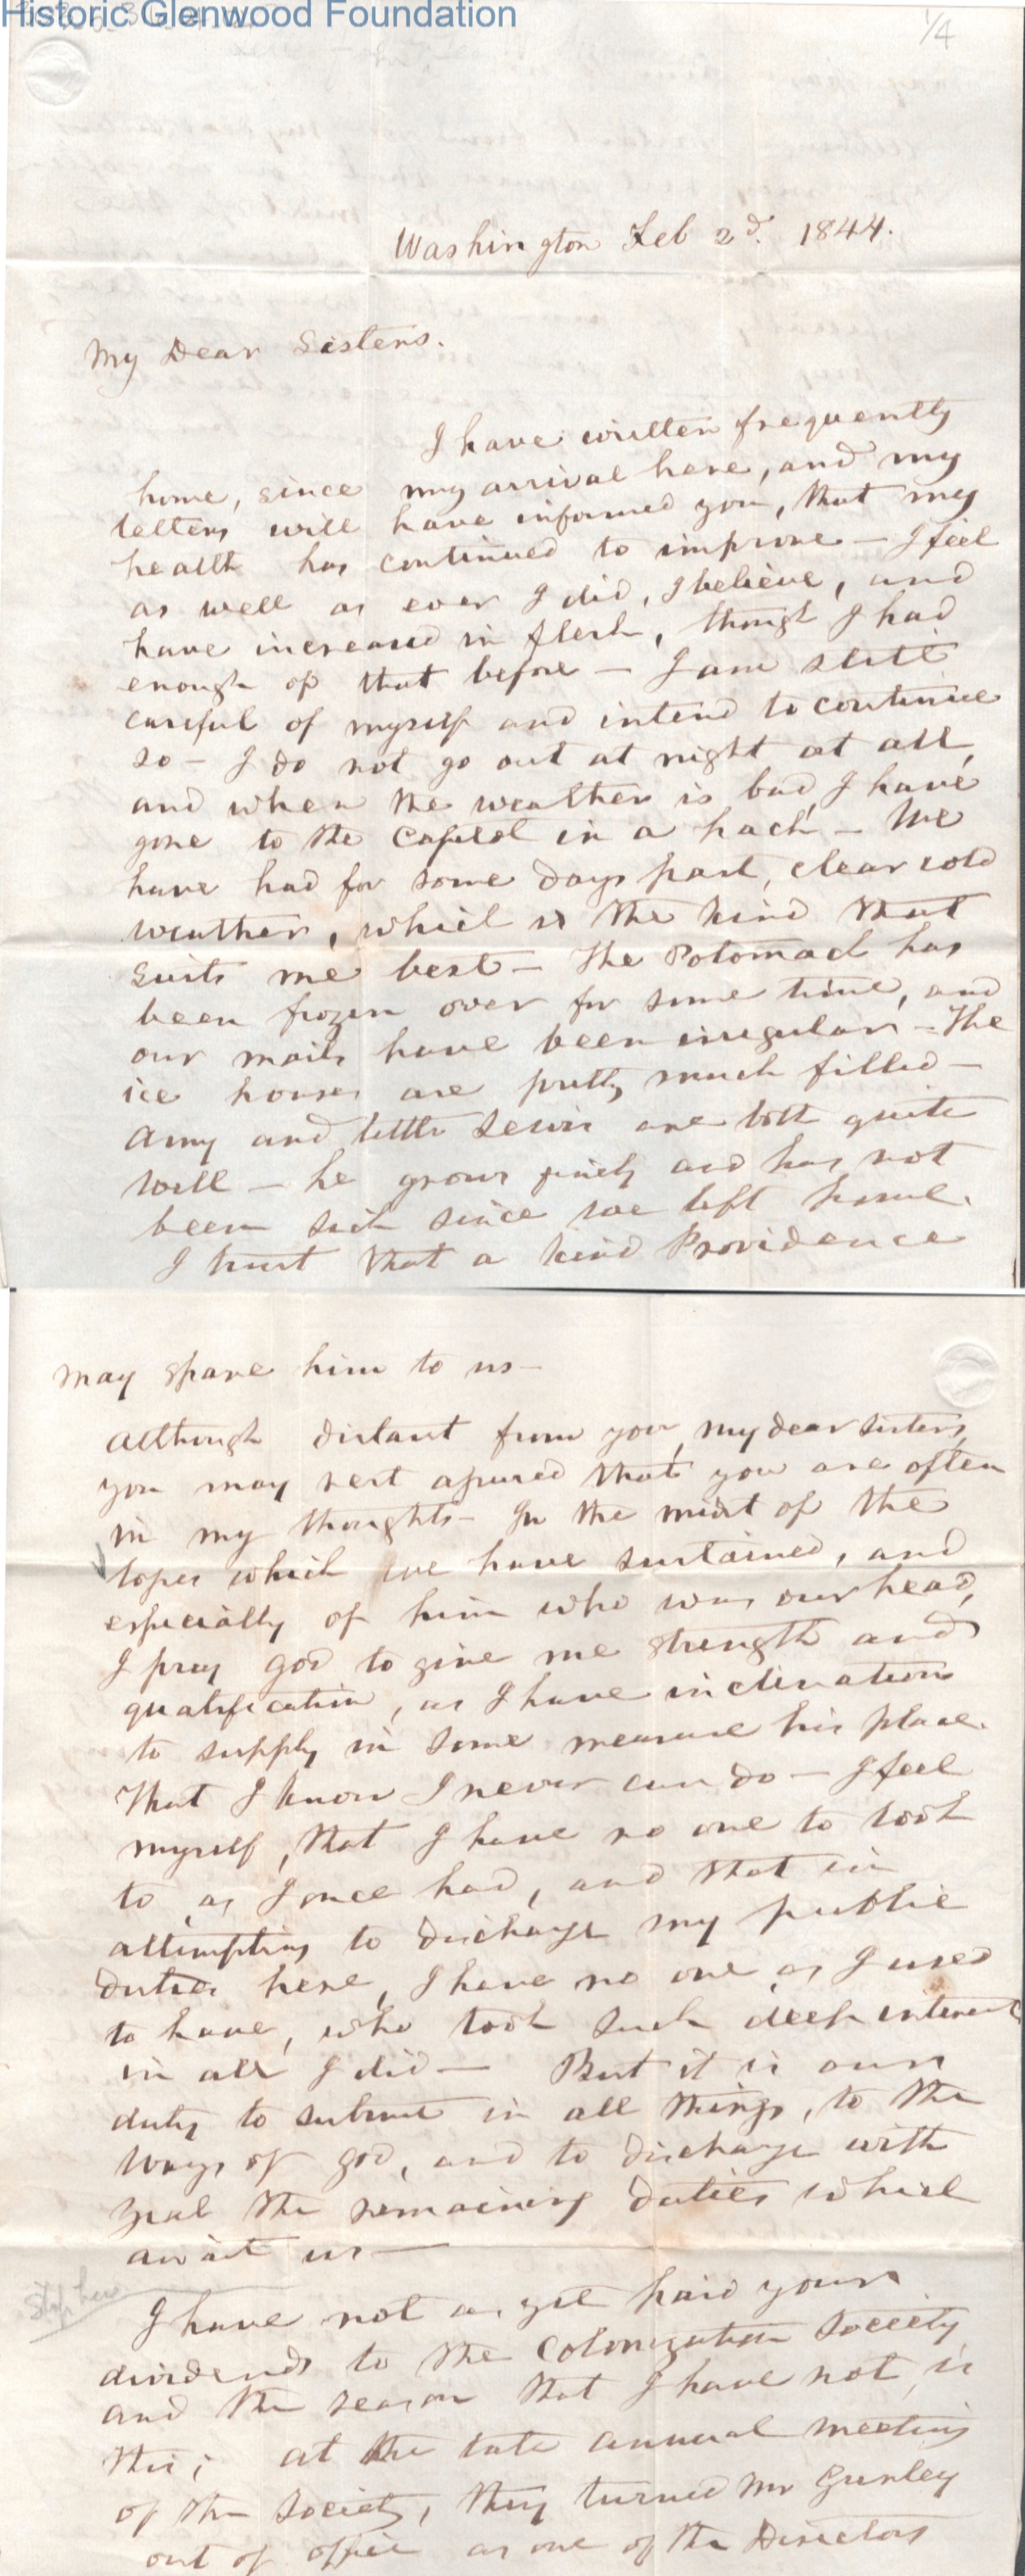 Historic Glenwood Foundation
1/4
Washington Feb 2d. 1844.
My Dear Sisters.
I have written frequently
home, since my arrival here, and my
letters will have informed you, that my
health has continued to improve – I feel
as well as ever I did, I believe, and
have increased in flesh, though I had
enough of that before – I am still
careful of myself and intend to continue
so – I do not go out at night at all,
and when the weather is bad, I have
gone to the Capitol in a hack – We
have had for some days past, clear cold
weather, which is the kind that
suits me best – The Potomack has
been frozen over for some time, and
our mails have been irregular – The
ice houses are pretty much filled –
Amy and little Lewis are both quite
well – he grows finely and has not
been sick since we left home.
I trust that a kind Providence
may spare him to us –
Although distant from you, my dear sisters,
you may rest assured that you are often
in my thoughts – In the midst of the
losses which we have sustained, and
especially of him who was our head,
I pray God to give me strength and
qualification, as I have inclination
to supply in some measure his place.
That I know I never can do – I feel
myself, that I have no one to look
to, as I once had, and that in
attempting to discharge my public
duties here, I have no one, as I used
to have, who took such deep interest
in all I did – But it is our
duty to submit in all things, to the
ways of God, and to discharge with
zeal the remaining duties which
await us –
Stop here
I have not as yet paid your
dividends to the Colonization Society,
and the reason that I have not, is
this; at the late annual meeting
of the Society, they turned Mr Gurley
out of office as one of the Directors